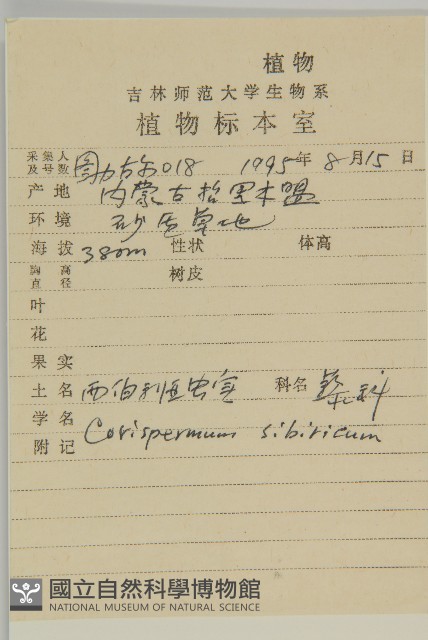 植物
吉林师范大学生物系
植物标本室
采集人及号数 图力古尔018 1995年 8月15日
产地 内蒙古哲里木盟
环境 砂质草地
海拔 380m 性状 体高
胸高直径 树皮
叶
花
果实
土名 西伯利亚虫实 科名 藜科
学名 Corispermum sibiricum
附记
國立自然科學博物館
NATIONAL MUSEUM OF NATURAL SCIENCE